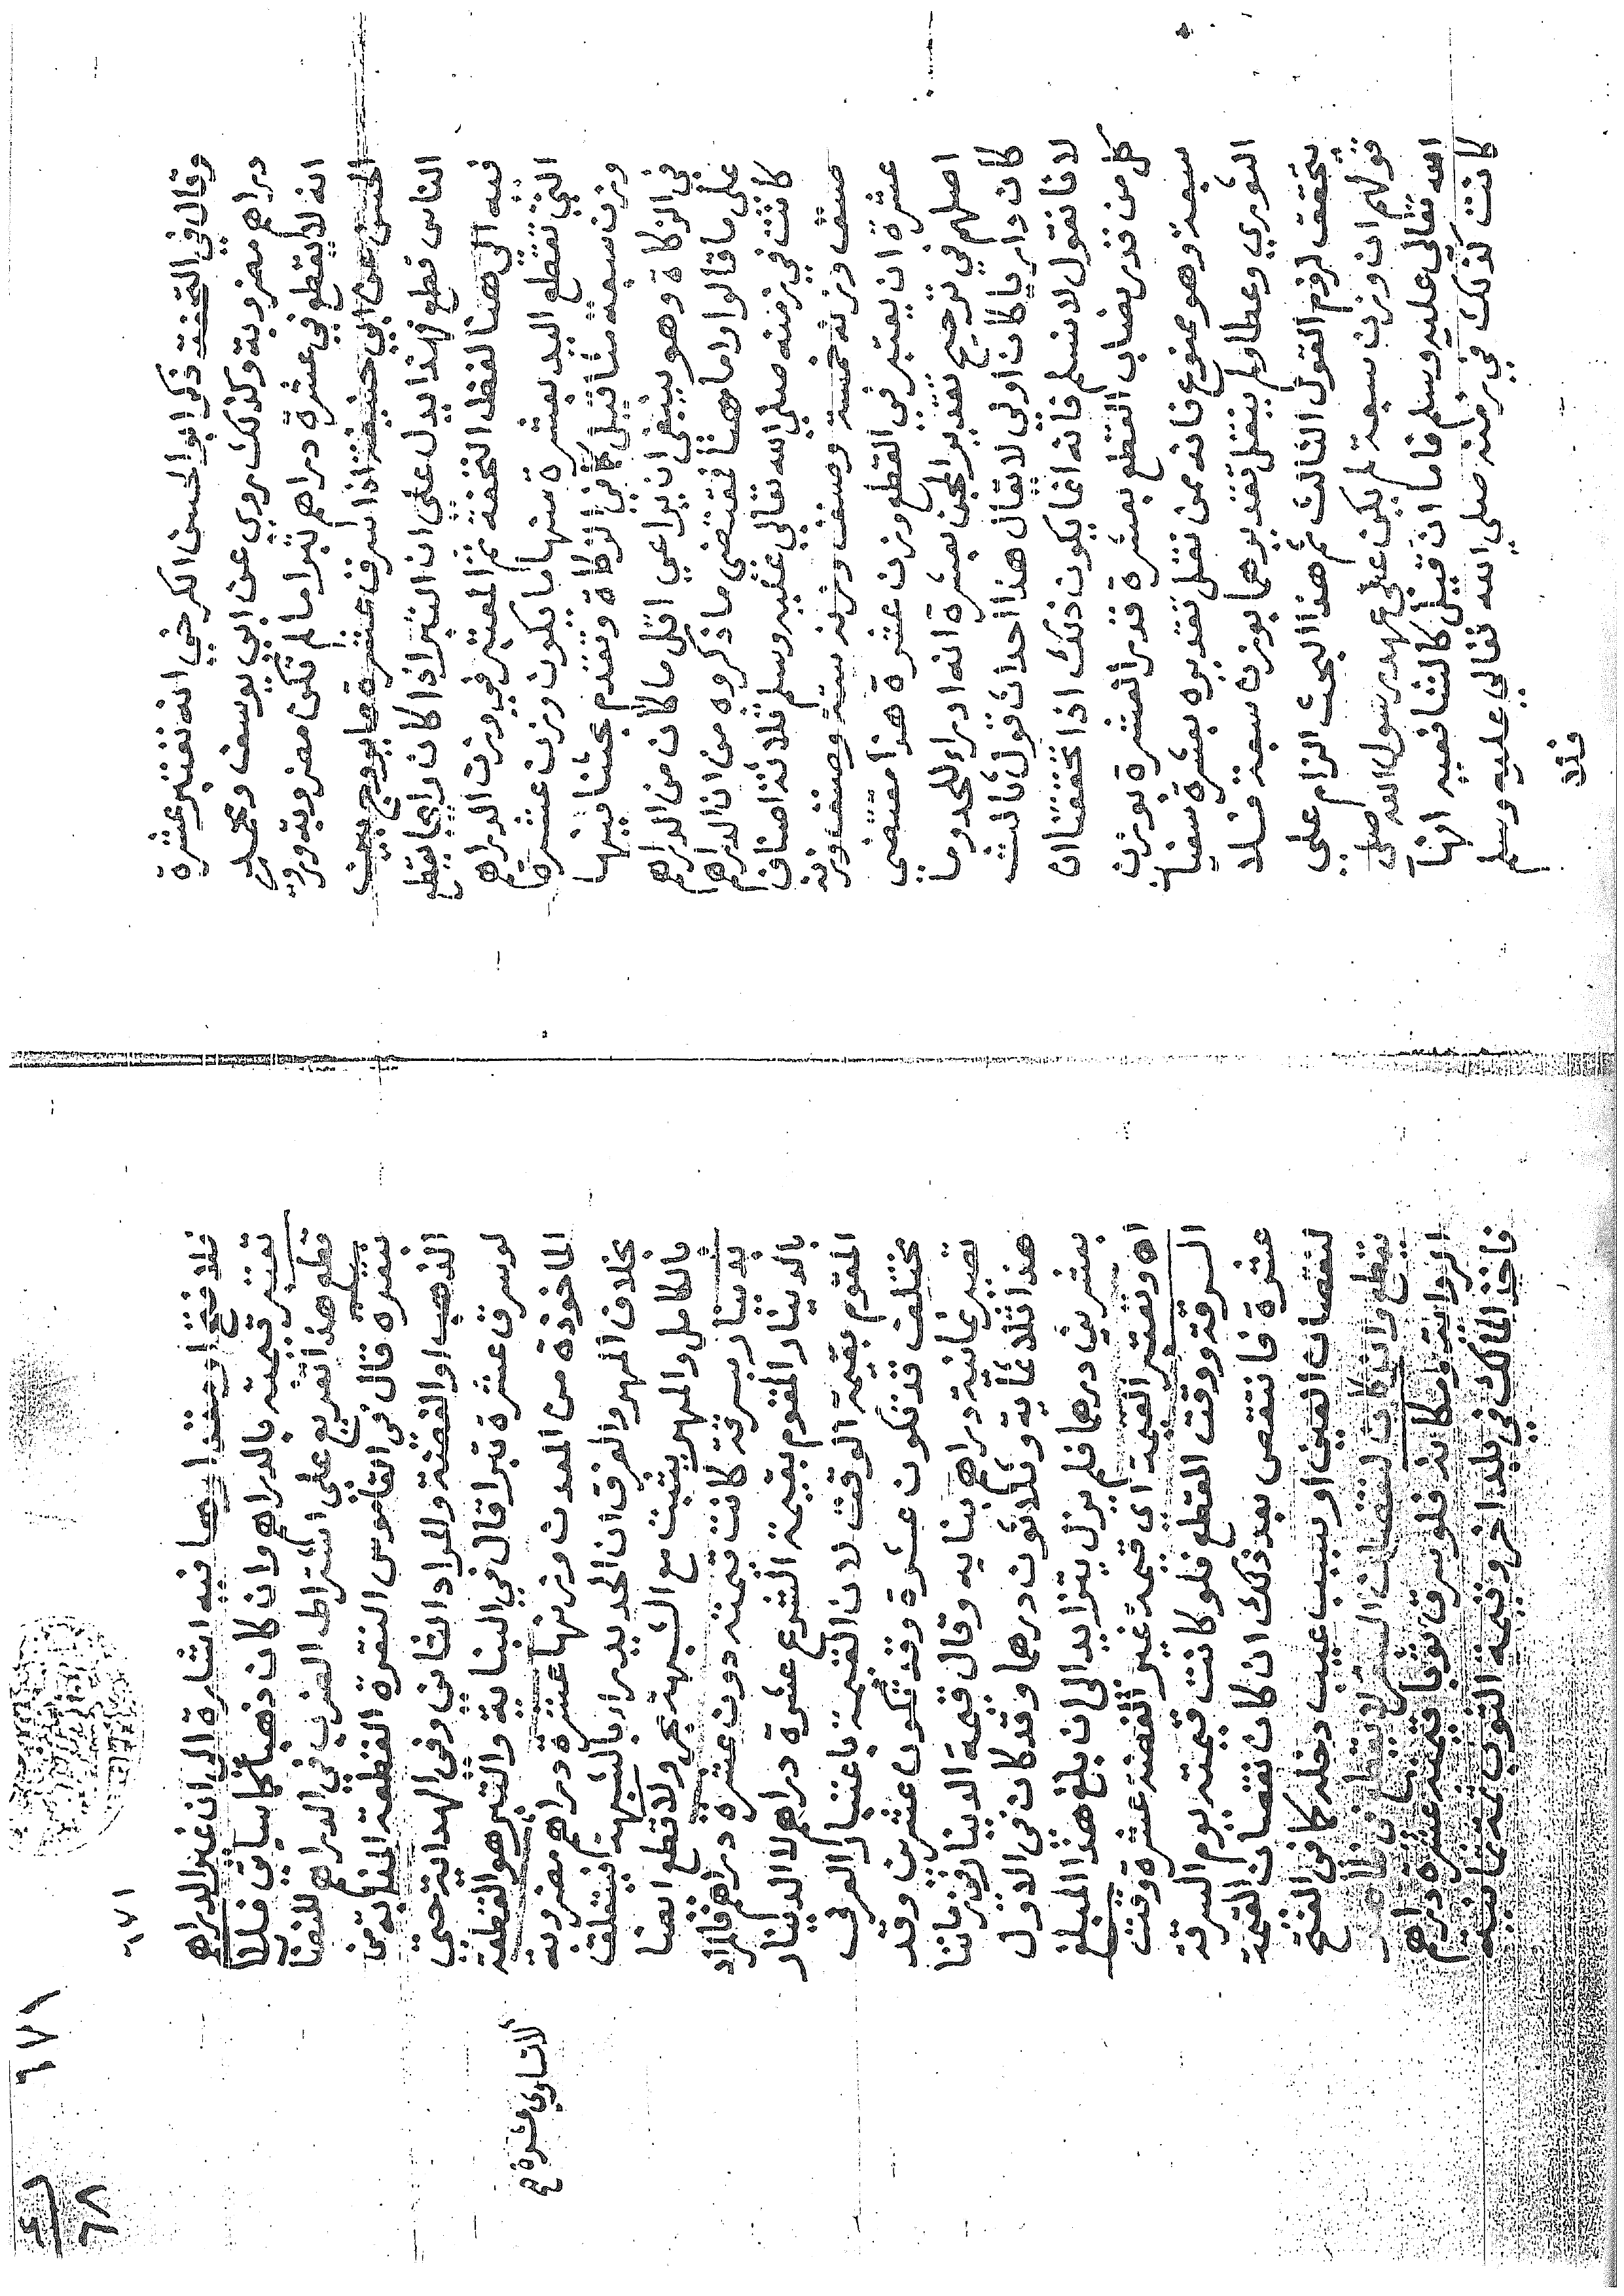 وقال في التحفة ذكر ابو الحسن الكرخي انه تعتبر عشرة
دراهم مضروبة وكذلك روي عن ابي يوسف ومحمد
انه لا يقطع في عشرة دراهم تبرا ما لم تكن مضروبة وروي
الحسن عن ابي حنيفة اذا سرق عشرة مما يروج بين
الناس قطع فهذا يدل على ان التبر اذا كان رايجا يقطع
فيه الى هنا لفظ التحفة ثم المعتبر في وزن الدراهم
التي تقطع اليد بعشرة منها ما يكون وزن عشرة
وزن سبعة مثاقيل كما في الزكاة وتقدم بحثنا فيها
في الزكاة وهو ينبغي ان يراعي اقل ما كان من الدراهم
على ما قالوا واما هنا فمقتضى ما ذكروه من ان الدراهم
كانت في زمنه صلى الله تعالي عليه وسلم ثلاثة اصناف
صنف وزنه خمسة وصنف وزنه ستة وصنف وزنه
عشرة ان يعتبر في القطع وزن عشرة هذا مقتضى
اصلهم في ترجيح تقدير المجن بعشرة انه ادراء للحد وما
كان دارئا كان اولي لا يقال هذا احداث قول ثالث
لانا نقول لا نسلم فانه انما يكون ذلك اذا تحققنا ان
كل من قدر نصاب القطع بعشرة قدر العشرة بوزن
سبعة وهو ممنوع فانه ممن نقل تقديره بعشرة سفيان
الثوري وعطا ولم ينقل تقديرهما بوزن سبعة فلا
يتحقق لزوم القول الثالث ثم هذا البحث الزام على
قولهم ان وزن سبعة لم يكن على عهد رسول الله صلى
الله تعالى عليه وسلم فاما ان قيل كالشافعية انها
كانت كذلك في زمنه صلي الله تعالي عليه وسلم
فلا
٦٧١
٦٧١
فلا فتح او مقدارها فيه اشارة الى ان غير الدراهم
تعتبر قيمته بالدراهم وان كان ذهبا كما سياتي فلا
قطع هذا تفريع على اشتراط الضرب في الدراهم للقطع
بنقرة قال في القاموس النقرة القطعة المذابة من
الذهب او الفضة والمراد الثاني وفي الهداية حتى
لو سرق عشرة تبرا قال في البناية والتبر هو القطعة
الماخوذة من المعدن وزنها عشرة دراهم مضروبة
لا تساوي عشرة
بخلاف المهر والفرق ان الحد يدرا بالشبهة فيتعلق
بالكامل والمهر يثبت مع الشبهة ولا قطع ايضا
بدينار سرقة كانت قيمته دون عشرة دراهم فالمراد
بالدينار المقوم بقيمة الشرع عشرة دراهم لا الدينار
المقوم بقيمة الوقت لان القيمة باعتبار العرف
مختلف فقد تكون عشرة وقد تكون عشرين وقد
تصير ثمانية دراهم بنايه وقال قيمة الدينار في زماننا
هذا ثلاثمأية وثلاثون درهما وقد كان في الاول
بعشرين درهما فلم يزل يتزايد الى ان بلغ هذا المبلغ
اه وتعتبر القيمة اي قيمة غير الفضة عشرة وقت
السرقة ووقت القطع فلو كانت قيمته يوم السرقة
عشرة فانتقص بعد ذلك ان كان نقصان القيمة
لنقصان العين او بسبب عيب دخله كما في الفتح
تقطع وان كان لنقصان السعر لا يقطع في ظاهر
الرواية ومكانه فلو سرق ثوبا قيمته عشرة دراهم
فاخذ المالك في بلد اخر وقيمة الثوب ثمة ثمانية